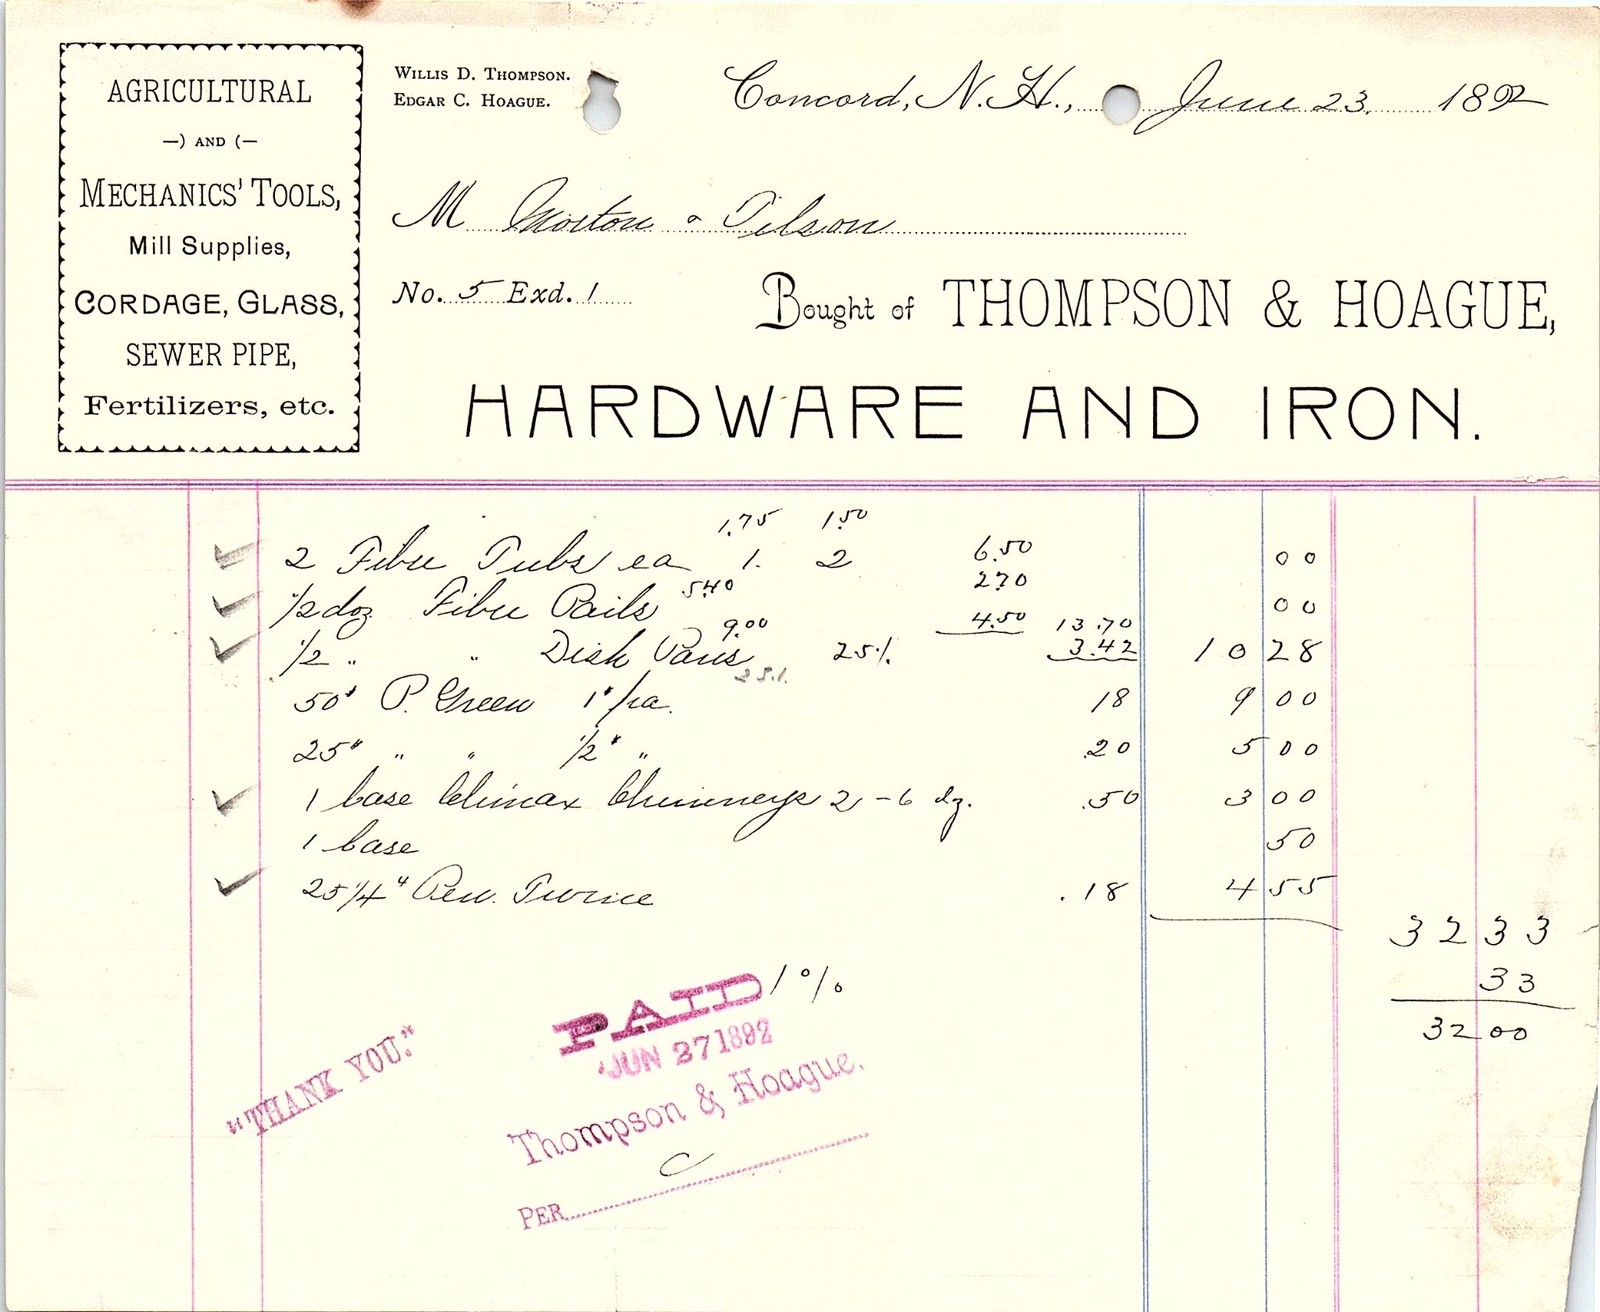 AGRICULTURAL
—) AND (—
MECHANICS' TOOLS,
Mill Supplies,
CORDAGE, GLASS,
SEWER PIPE,
Fertilizers, etc.
WILLIS D. THOMPSON.
EDGAR C. HOAGUE.
Concord, N. H., June 23. 1892
M Morton & Tilson
No. 5 Exd. 1
Bought of THOMPSON & HOAGUE,
HARDWARE AND IRON.
1.75 1.50
2 Fibre Tubs ea 1. 2 6.50 00
5.40 2.70
1/2 doz Fibre Pails 00
9.00 4.50 13.70
1/2 " " Dish Pans 25% 3.42 10 28
25%
50# P. Green 1# pa. 18 9 00
25# " " 1/2# " .20 5 00
1 Case Climax Chimneys 2 - 6 dz. .50 3 00
1 Case 50
25 1/4 " Twine .18 4 55
32 33
1% 33
32 00
PAID
JUN 27 1892
Thompson & Hoague.
PER C
"THANK YOU."